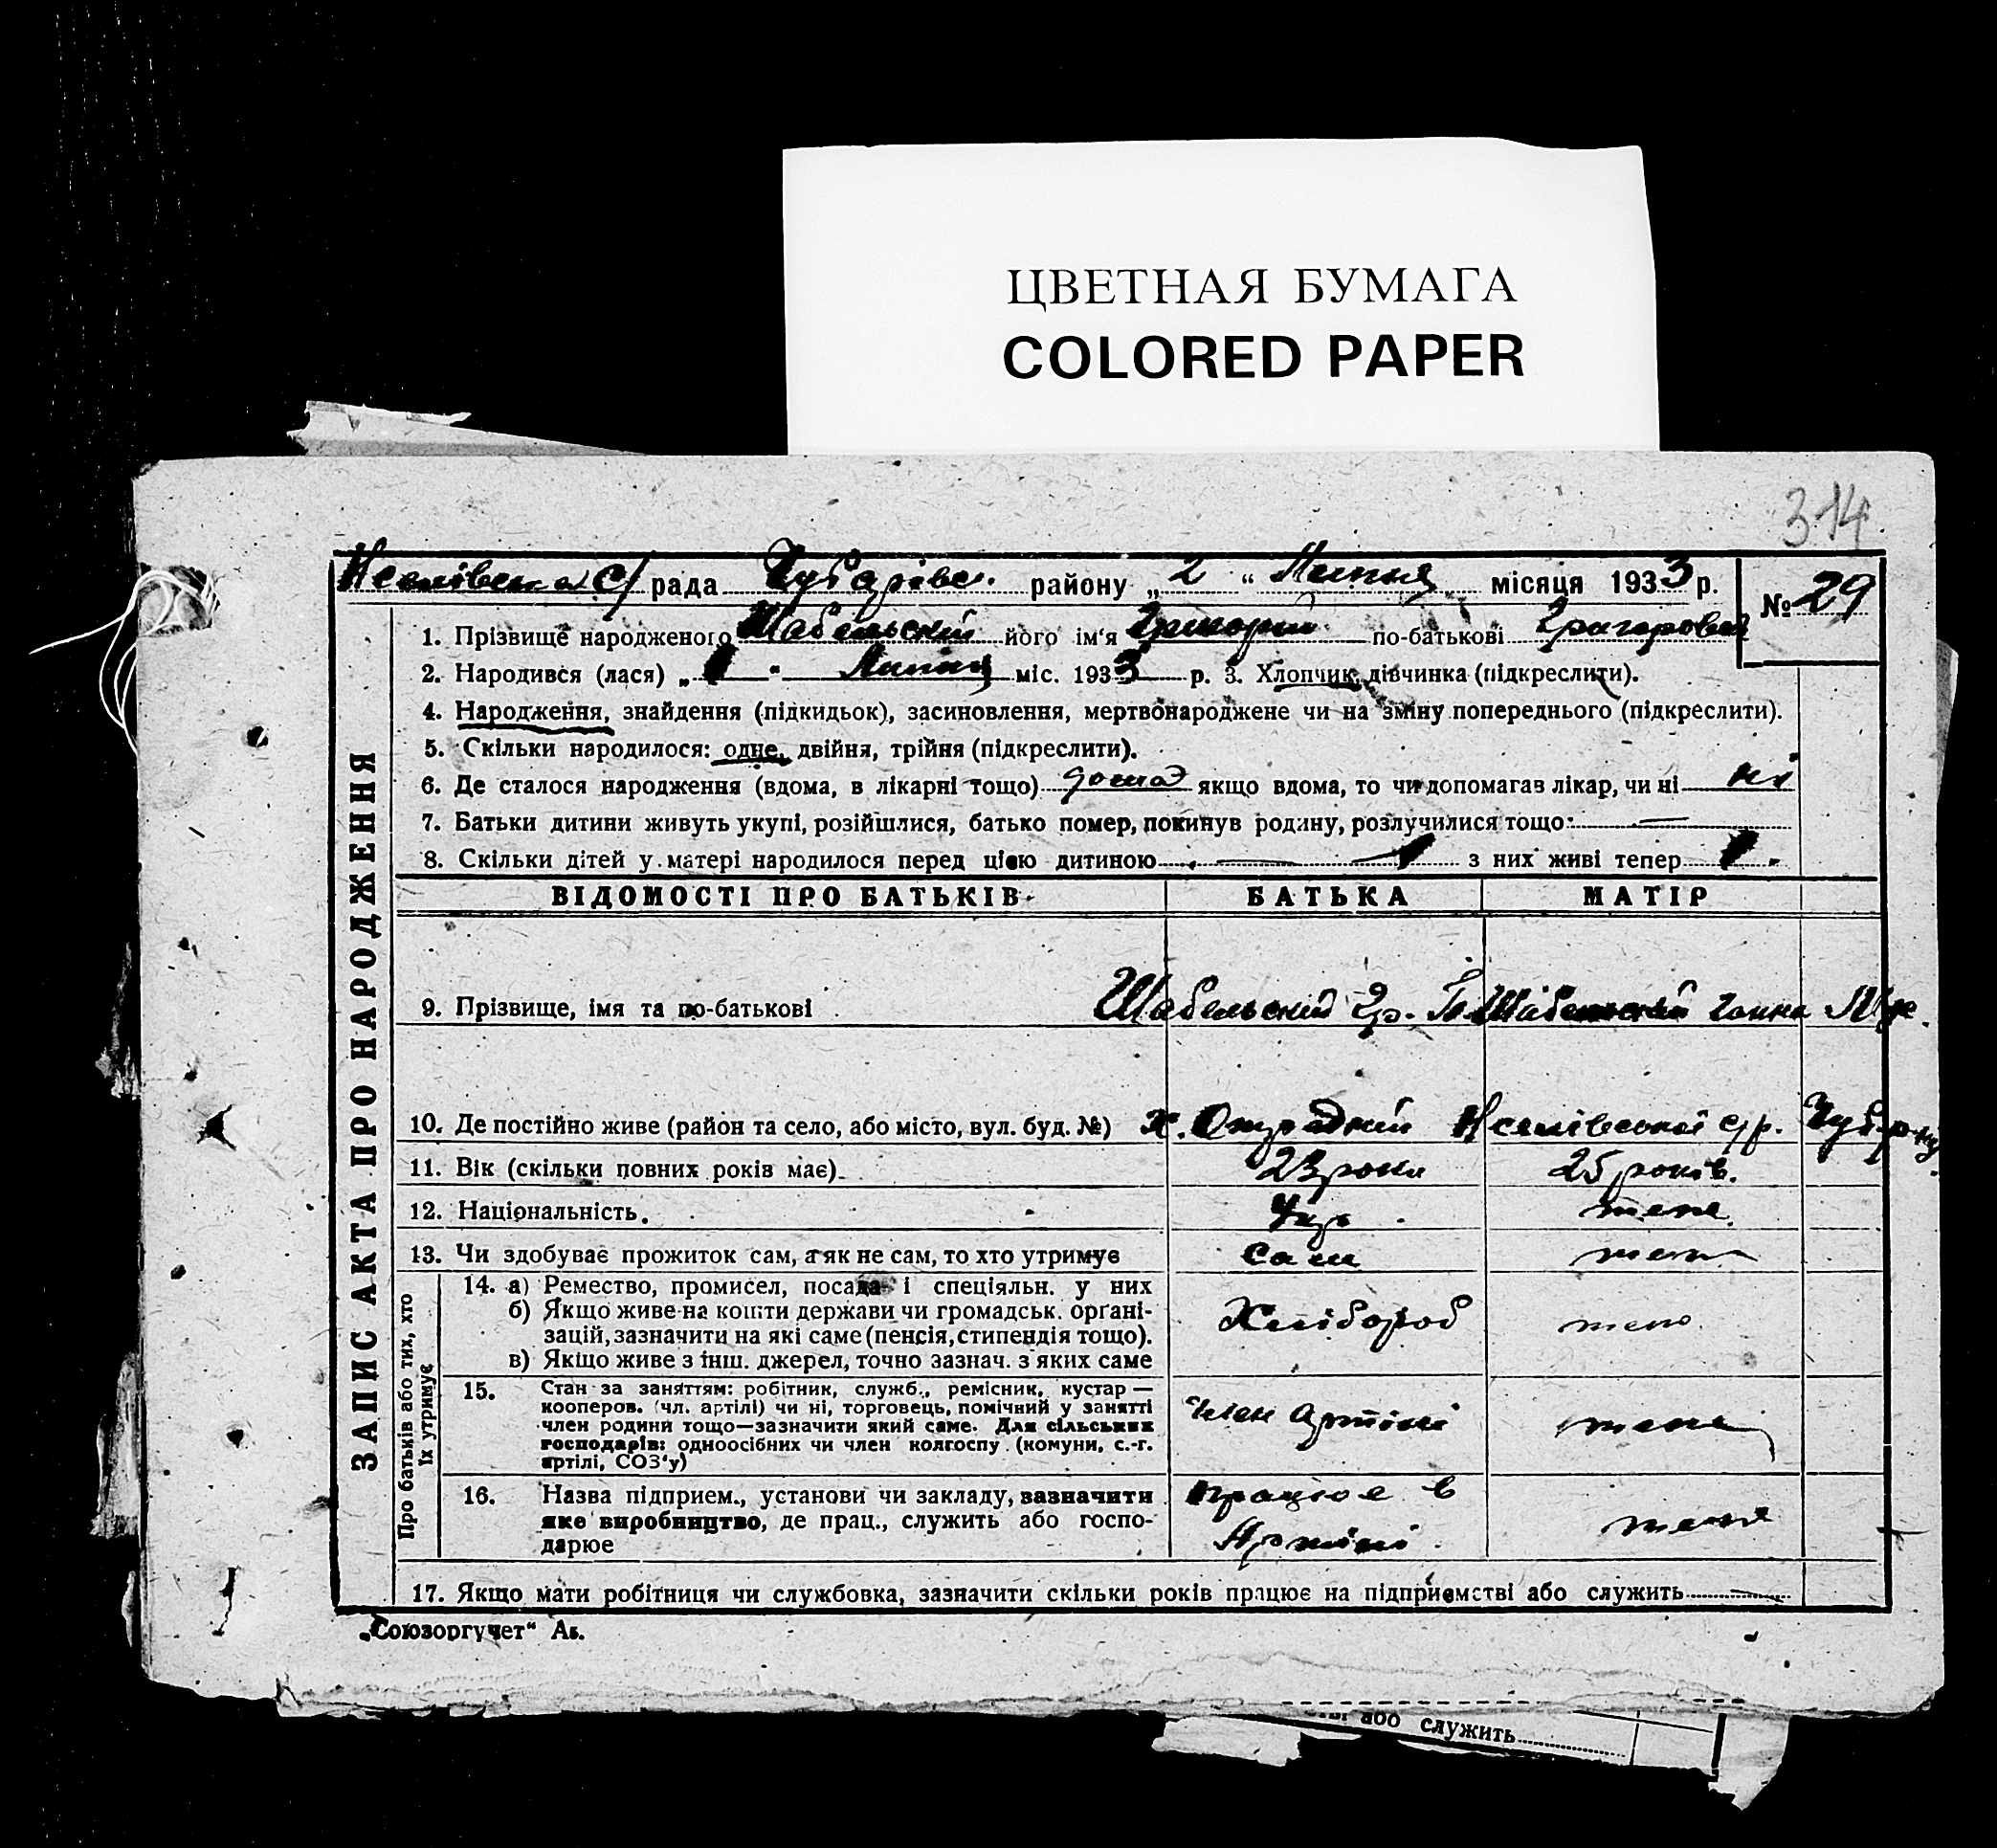 ЦВЕТНАЯ БУМАГА
COLORED PAPER
314
рада Чубарівс. району „ 2 “ Липня місяця 1933 р. № 29
1. Прізвище народженого Шабельский його ім'я Григорий по-батькові Григорович
2. Народився (лася) „ “ Липня міс. 1933 р. 3. Хлопчик, дівчинка (підкреслити).
4. Народження, знайдення (підкидьок), засиновлення, мертвонароджене чи на зміну попереднього (підкреслити).
5. Скільки народилося: одне, двійня, трійня (підкреслити).
6. Де сталося народження (вдома, в лікарні тощо) дома якщо вдома, то чи допомагав лікар, чи ні ні
7. Батьки дитини живуть укупі, розійшлися, батько помер, покинув родину, розлучилися тощо: —
8. Скільки дітей у матері народилося перед цією дитиною — з них живі тепер
ЗАПИС АКТА ПРО НАРОДЖЕННЯ
ВІДОМОСТІ ПРО БАТЬКІВ БАТЬКА МАТІР
9. Прізвище, імя та по-батькові Шабельский Гр. Ганна
10. Де постійно живе (район та село, або місто, вул. буд. №) х. Отрадний с/р.
11. Вік (скільки повних років має) 23 роки 25 років.
12. Національність. Укр. теже
13. Чи здобуває прожиток сам, а як не сам, то хто утримує сам теже
Про батьків або тих, хто їх утримує
14. а) Ремество, промисел, посада і спеціяльн. у них
б) Якщо живе на кошти держави чи громадськ. органі-
зацій, зазначити на які саме (пенсія, стипендія тощо). Хлібороб теже
в) Якщо живе з інш. джерел, точно зазнач. з яких саме
15. Стан за заняттям: робітник, служб., ремісник, кустар —
кооперов. (чл. артілі) чи ні, торговець, помічний у занятті
член родини тощо—зазначити який саме. Для сільських член артілі теже
господарів: одноосібних чи член колгоспу (комуни, с.-г.
артілі, СОЗ'у)
16. Назва підприєм., установи чи закладу, зазначити працює в
яке виробництво, де прац., служить або госпо- теже
дарює Артілі
17. Якщо мати робітниця чи службовка, зазначити скільки років працює на підприємстві або служить —
„Союзоргучет“
або служить